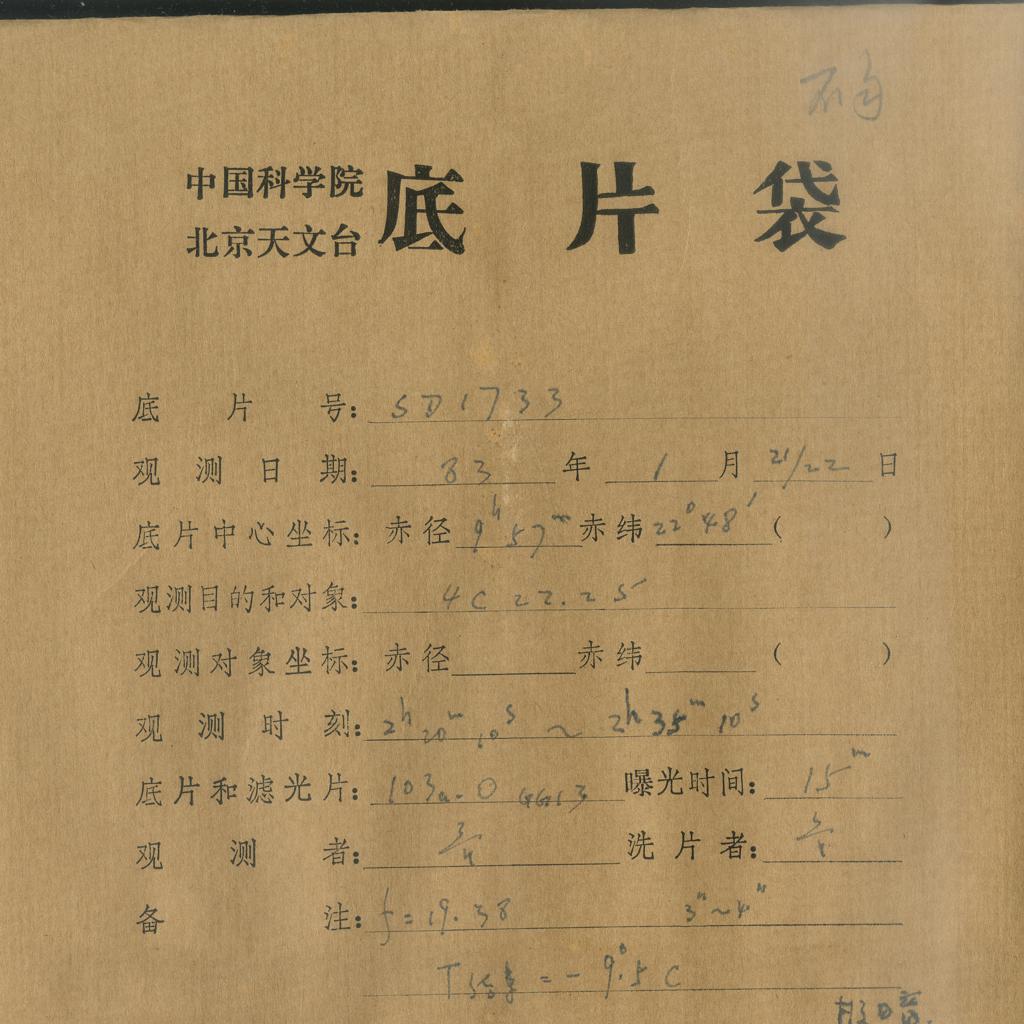 中国科学院
北京天文台
底片袋
底片号：SD1733
观测日期：83年1月21/22日
底片中心坐标：赤径 9ʰ57ᵐ 赤纬 22°48′（ ）
观测目的和对象：4C 22.25
观测对象坐标：赤径 赤纬 （ ）
观测时刻：2ʰ20ᵐ10ˢ ~ 2ʰ35ᵐ10ˢ
底片和滤光片：103a-O GG13 曝光时间：15ᵐ
观测者： 洗片者：
备注：f=19.38 3″~4″
T = -9°.5 C